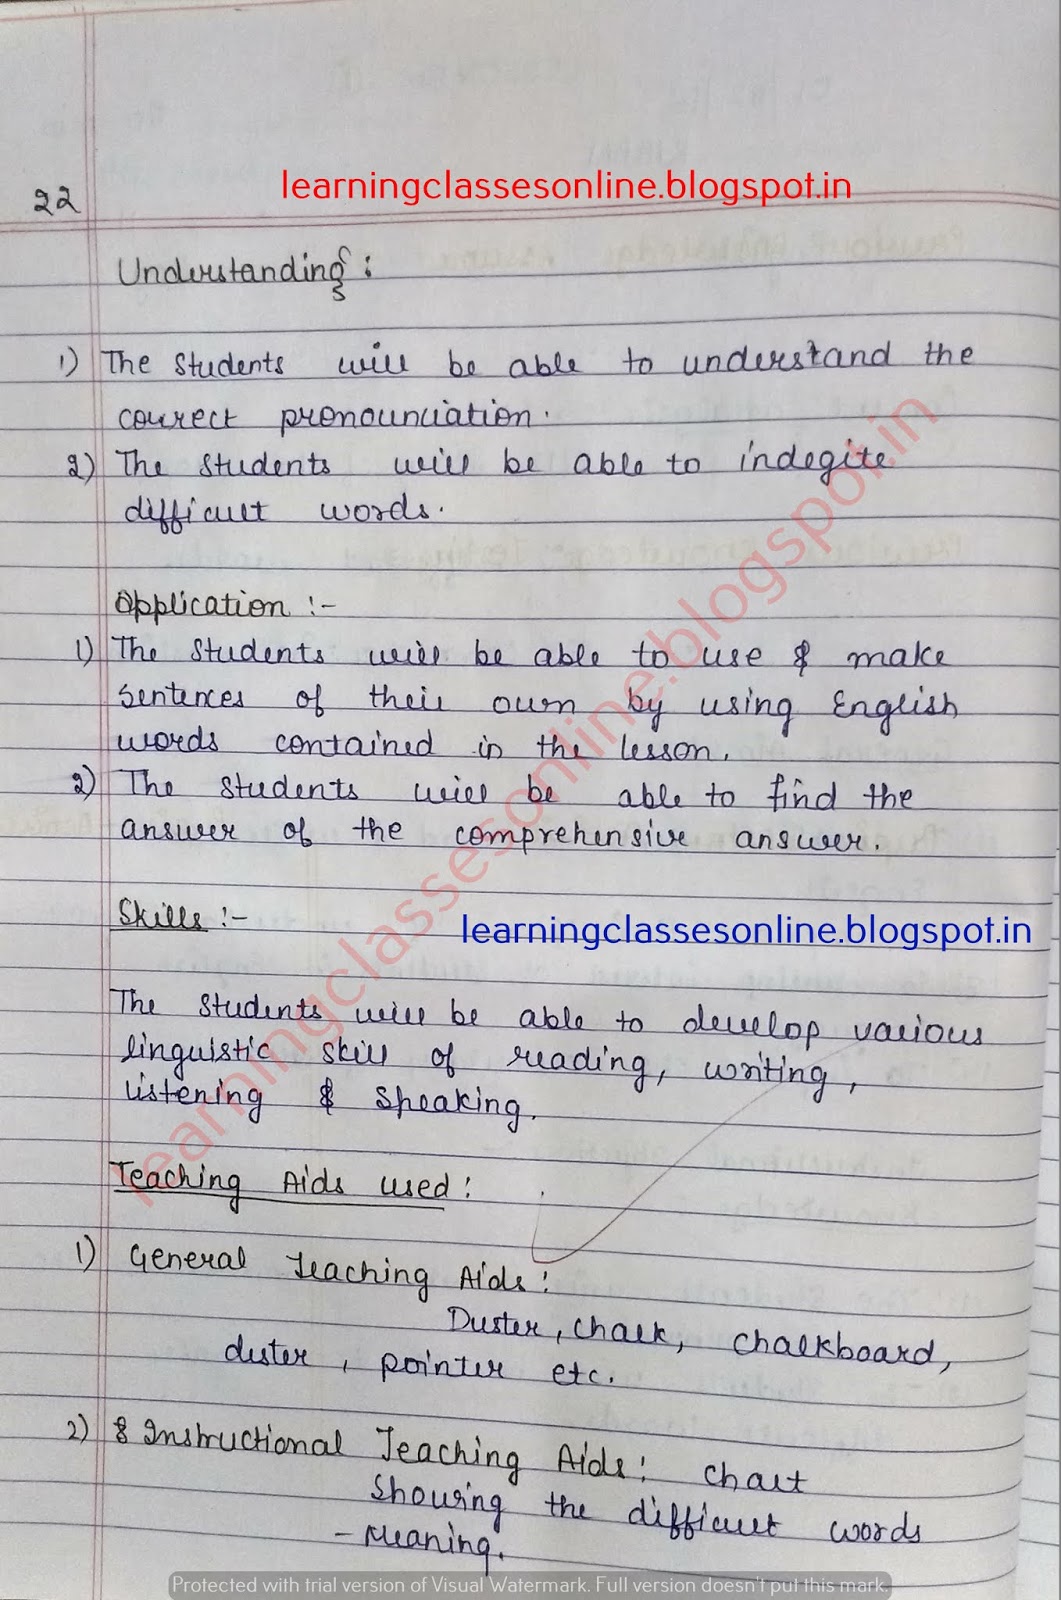 learningclassesonline.blogspot.in
22
Understanding :
1) The students will be able to understand the
correct pronounciation.
2) The students will be able to indegite
difficult words.
Application :-
1) The students will be able to use & make
sentences of their own by using English
words contained in the lesson.
2) The students will be able to find the
answer of the comprehensive answer.
Skills :-
learningclassesonline.blogspot.in
The students will be able to develop various
linguistic skill of reading, writing,
listening & speaking.
Teaching Aids used :
1) General Teaching Aids :
Duster, chalk, chalkboard,
duter, pointer etc.
2) & Instructional Teaching Aids : chart
showing the difficult words
- Meaning.
learningclassesonline.blogspot.in
Protected with trial version of Visual Watermark. Full version doesn't put this mark.